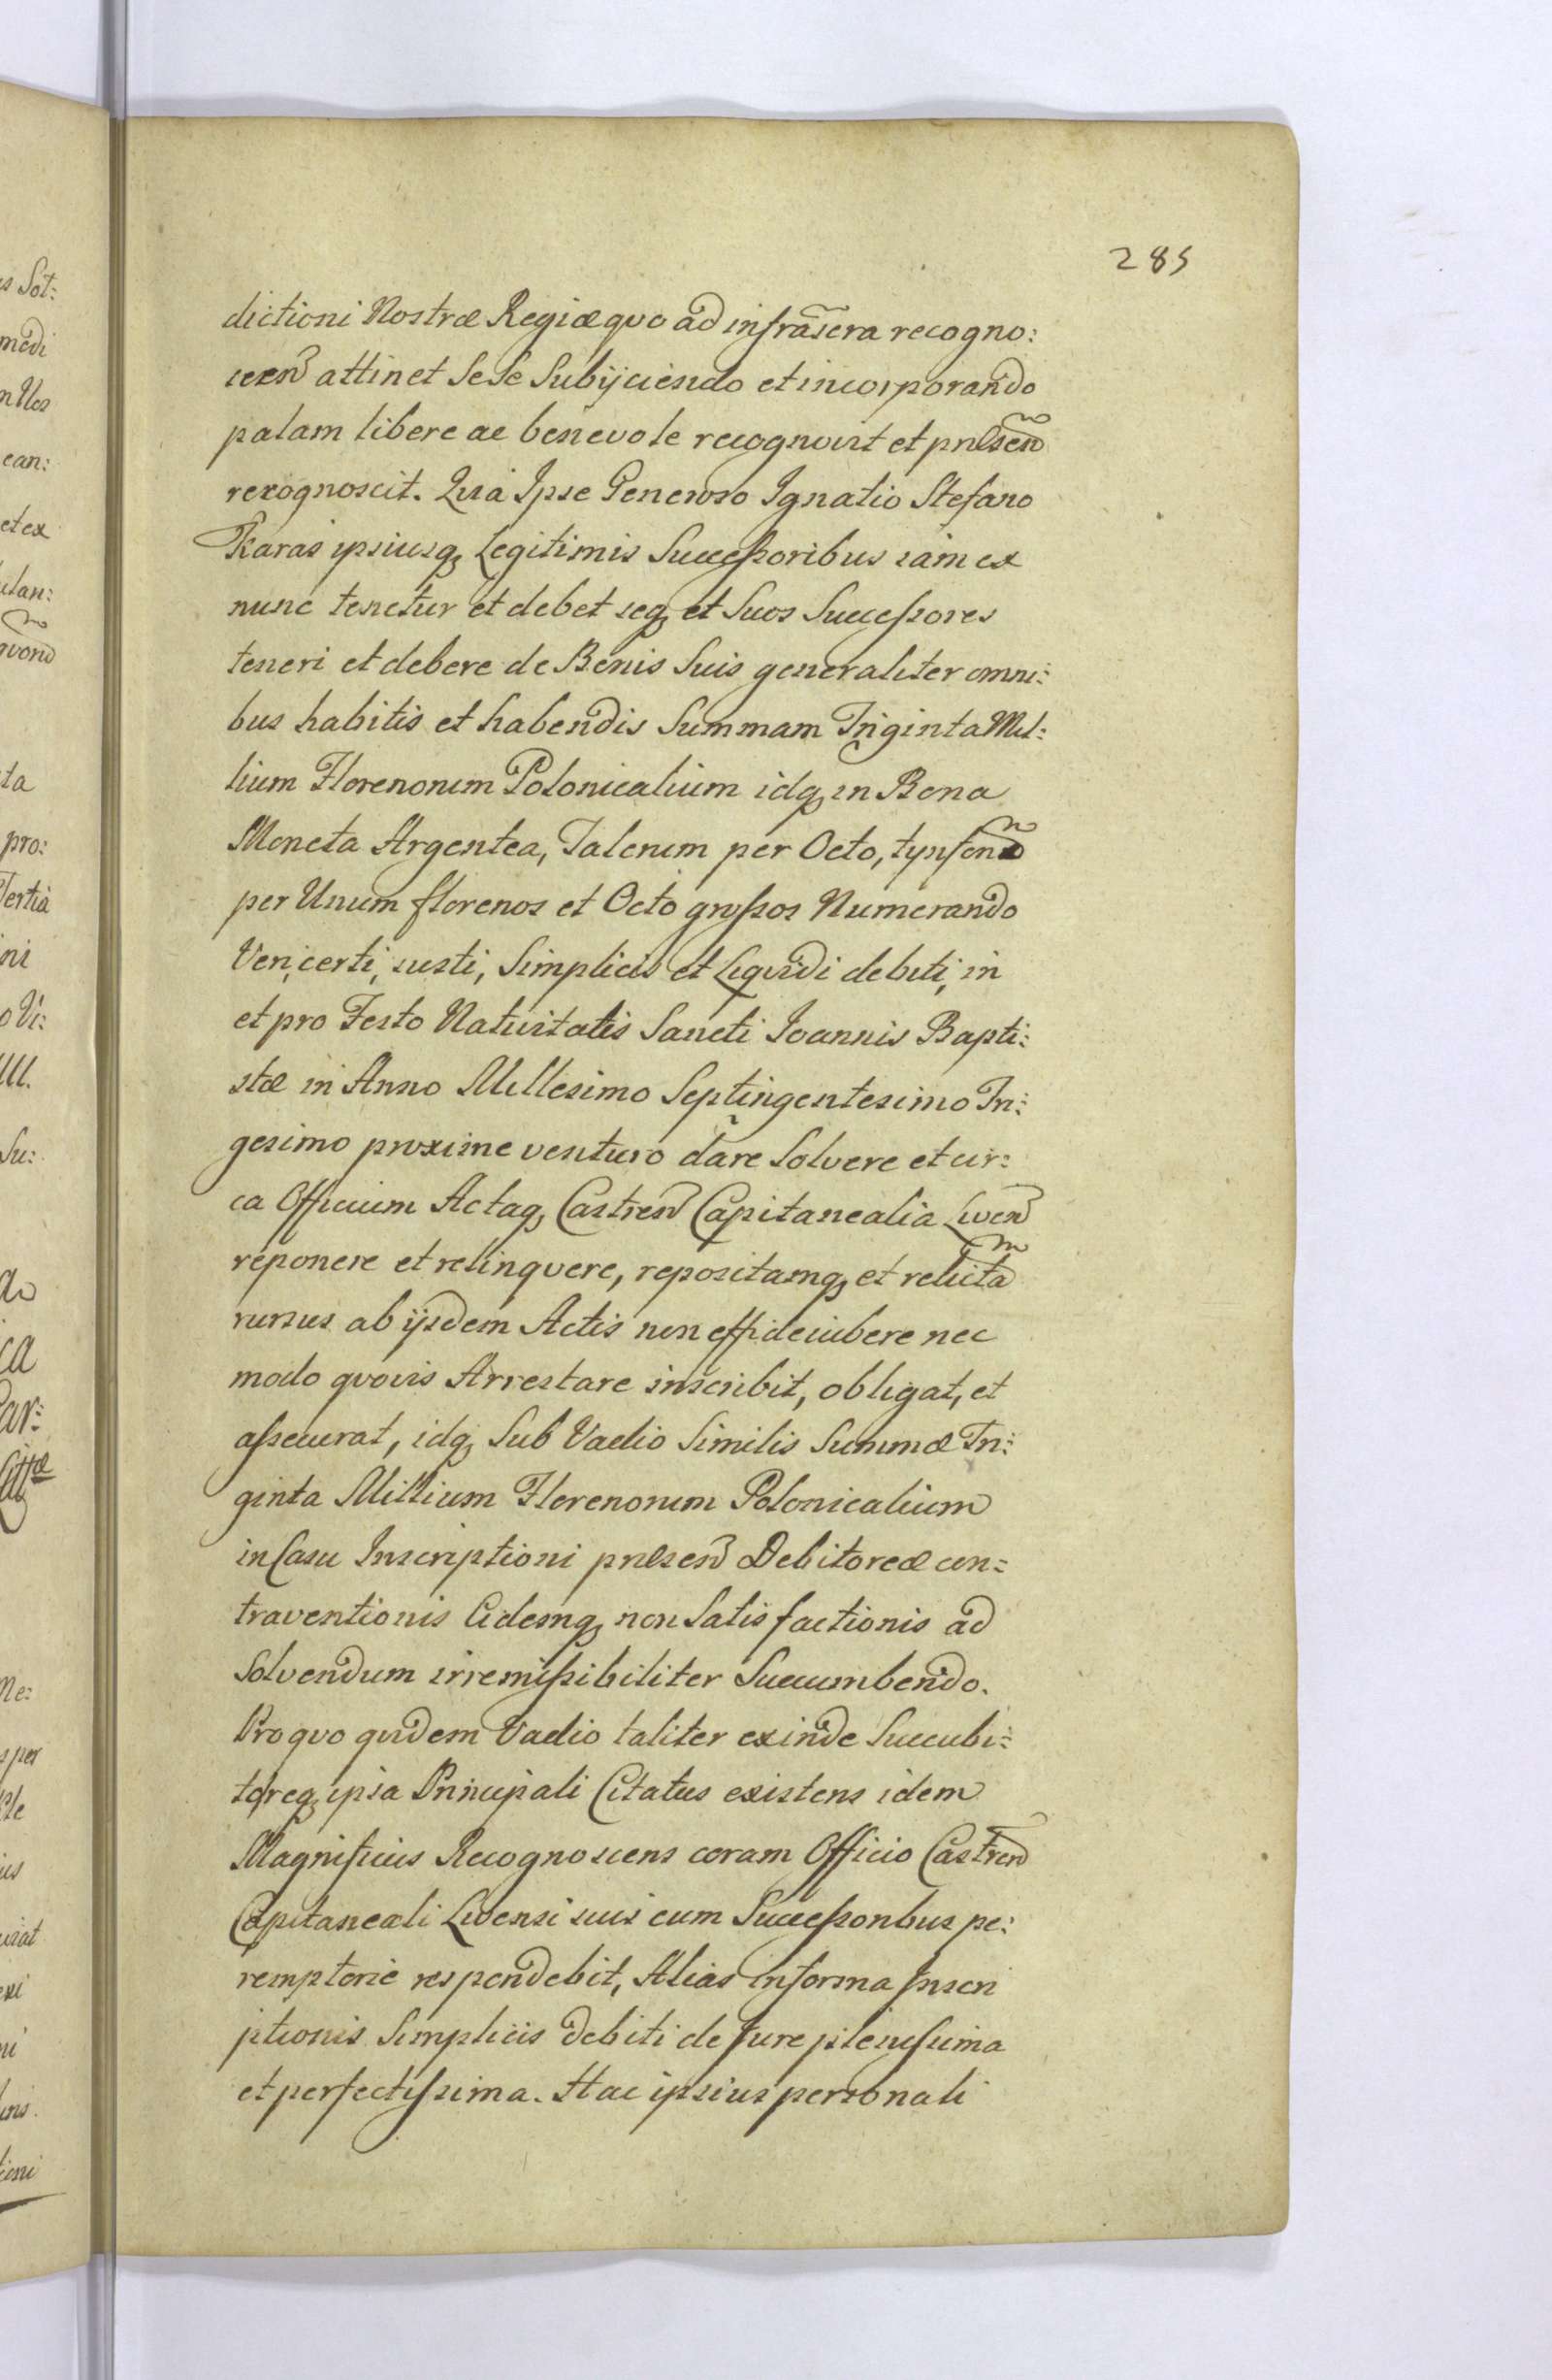 285
dictioni Nostræ Regiæ quo ad infrascra recogno:
scen attinet Sese Subijciendo et incorporando
palam libere ac benevole recognovit et prńsen
recognoscit. Quia Ipse Generoso Ignatio Stefano
Karas ipsiusq, Legitimis Successoribus iam ex
nunc tenetur et debet seq, et Suos Successores
teneri et debere de Bonis Suis generaliter omni:
bus habitis et habendis Summam Triginta Mil:
lium Florenorum Polonicalium idq, in Bona
Moneta Argentea, Talerum per Octo, tynfon
per Unum florenos et Octo grossos Numerando
Veri, certi, iusti, Simplicis et Liquidi debiti, in
et pro Festo Nativitatis Sancti Ioannis Bapti:
stæ in Anno Millesimo Septingentesimo Tri:
gesimo proxime venturo dare Solvere et cir:
ca Officium Actaq, Castren Capitanealia Liven
reponere et relinquere, repositamq, et relicta
rursus ab ijsdem Actis non effideiubere nec
modo quovis Arrestare inscribit, obligat, et
assecurat, idq, Sub Vadio Similis Summæ Tri:
ginta Millium Florenorum Polonicalium
in Casu Inscriptioni prńsen Debitoreæ con:
traventionis Eidemq, non Satisfactionis ad
Solvendum irremissibiliter Succumbendo.
Pro quo quidem Vadio taliter exinde Succubi:
toreq, ipsa Principali Citatus existens idem
Magnificus Recognoscens coram Officio Castren
Capitaneali Livensi suis cum Successoribus pe:
remptorie respondebit, Alias in forma Inscri
ptionis Simplicis debiti de Iure plenissima
et perfectissima. Hac ipsius personali
s Sot:
medi
n Nos
ean:
et ex
ulan:
ta
pro:
Tertia
ni
o Vi:
Su:
ca
Par:
Me:
s per
ius
ni
tioni